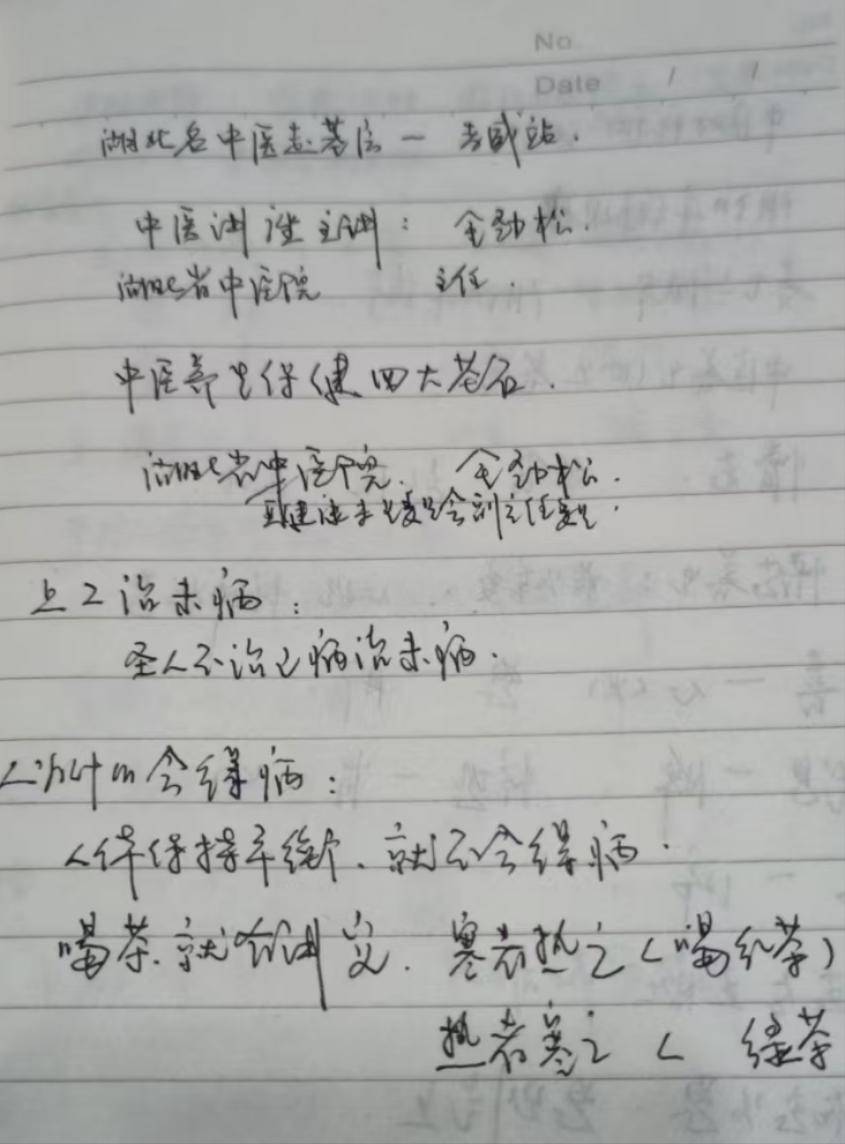 No
Date / /
湖北名中医走基层一 咸站.
中医讲座主讲: 金劲松.
湖北省中医院 主任.
中医养生保健四大基石.
湖北省中医院. 金劲松.
委员会副主任委员.
上工治未病:
圣人不治已病治未病.
人为什么会得病:
人体保持平衡、就不会得病.
喝茶.就有讲究. 寒者热之(喝红茶)
热者寒之( 绿茶